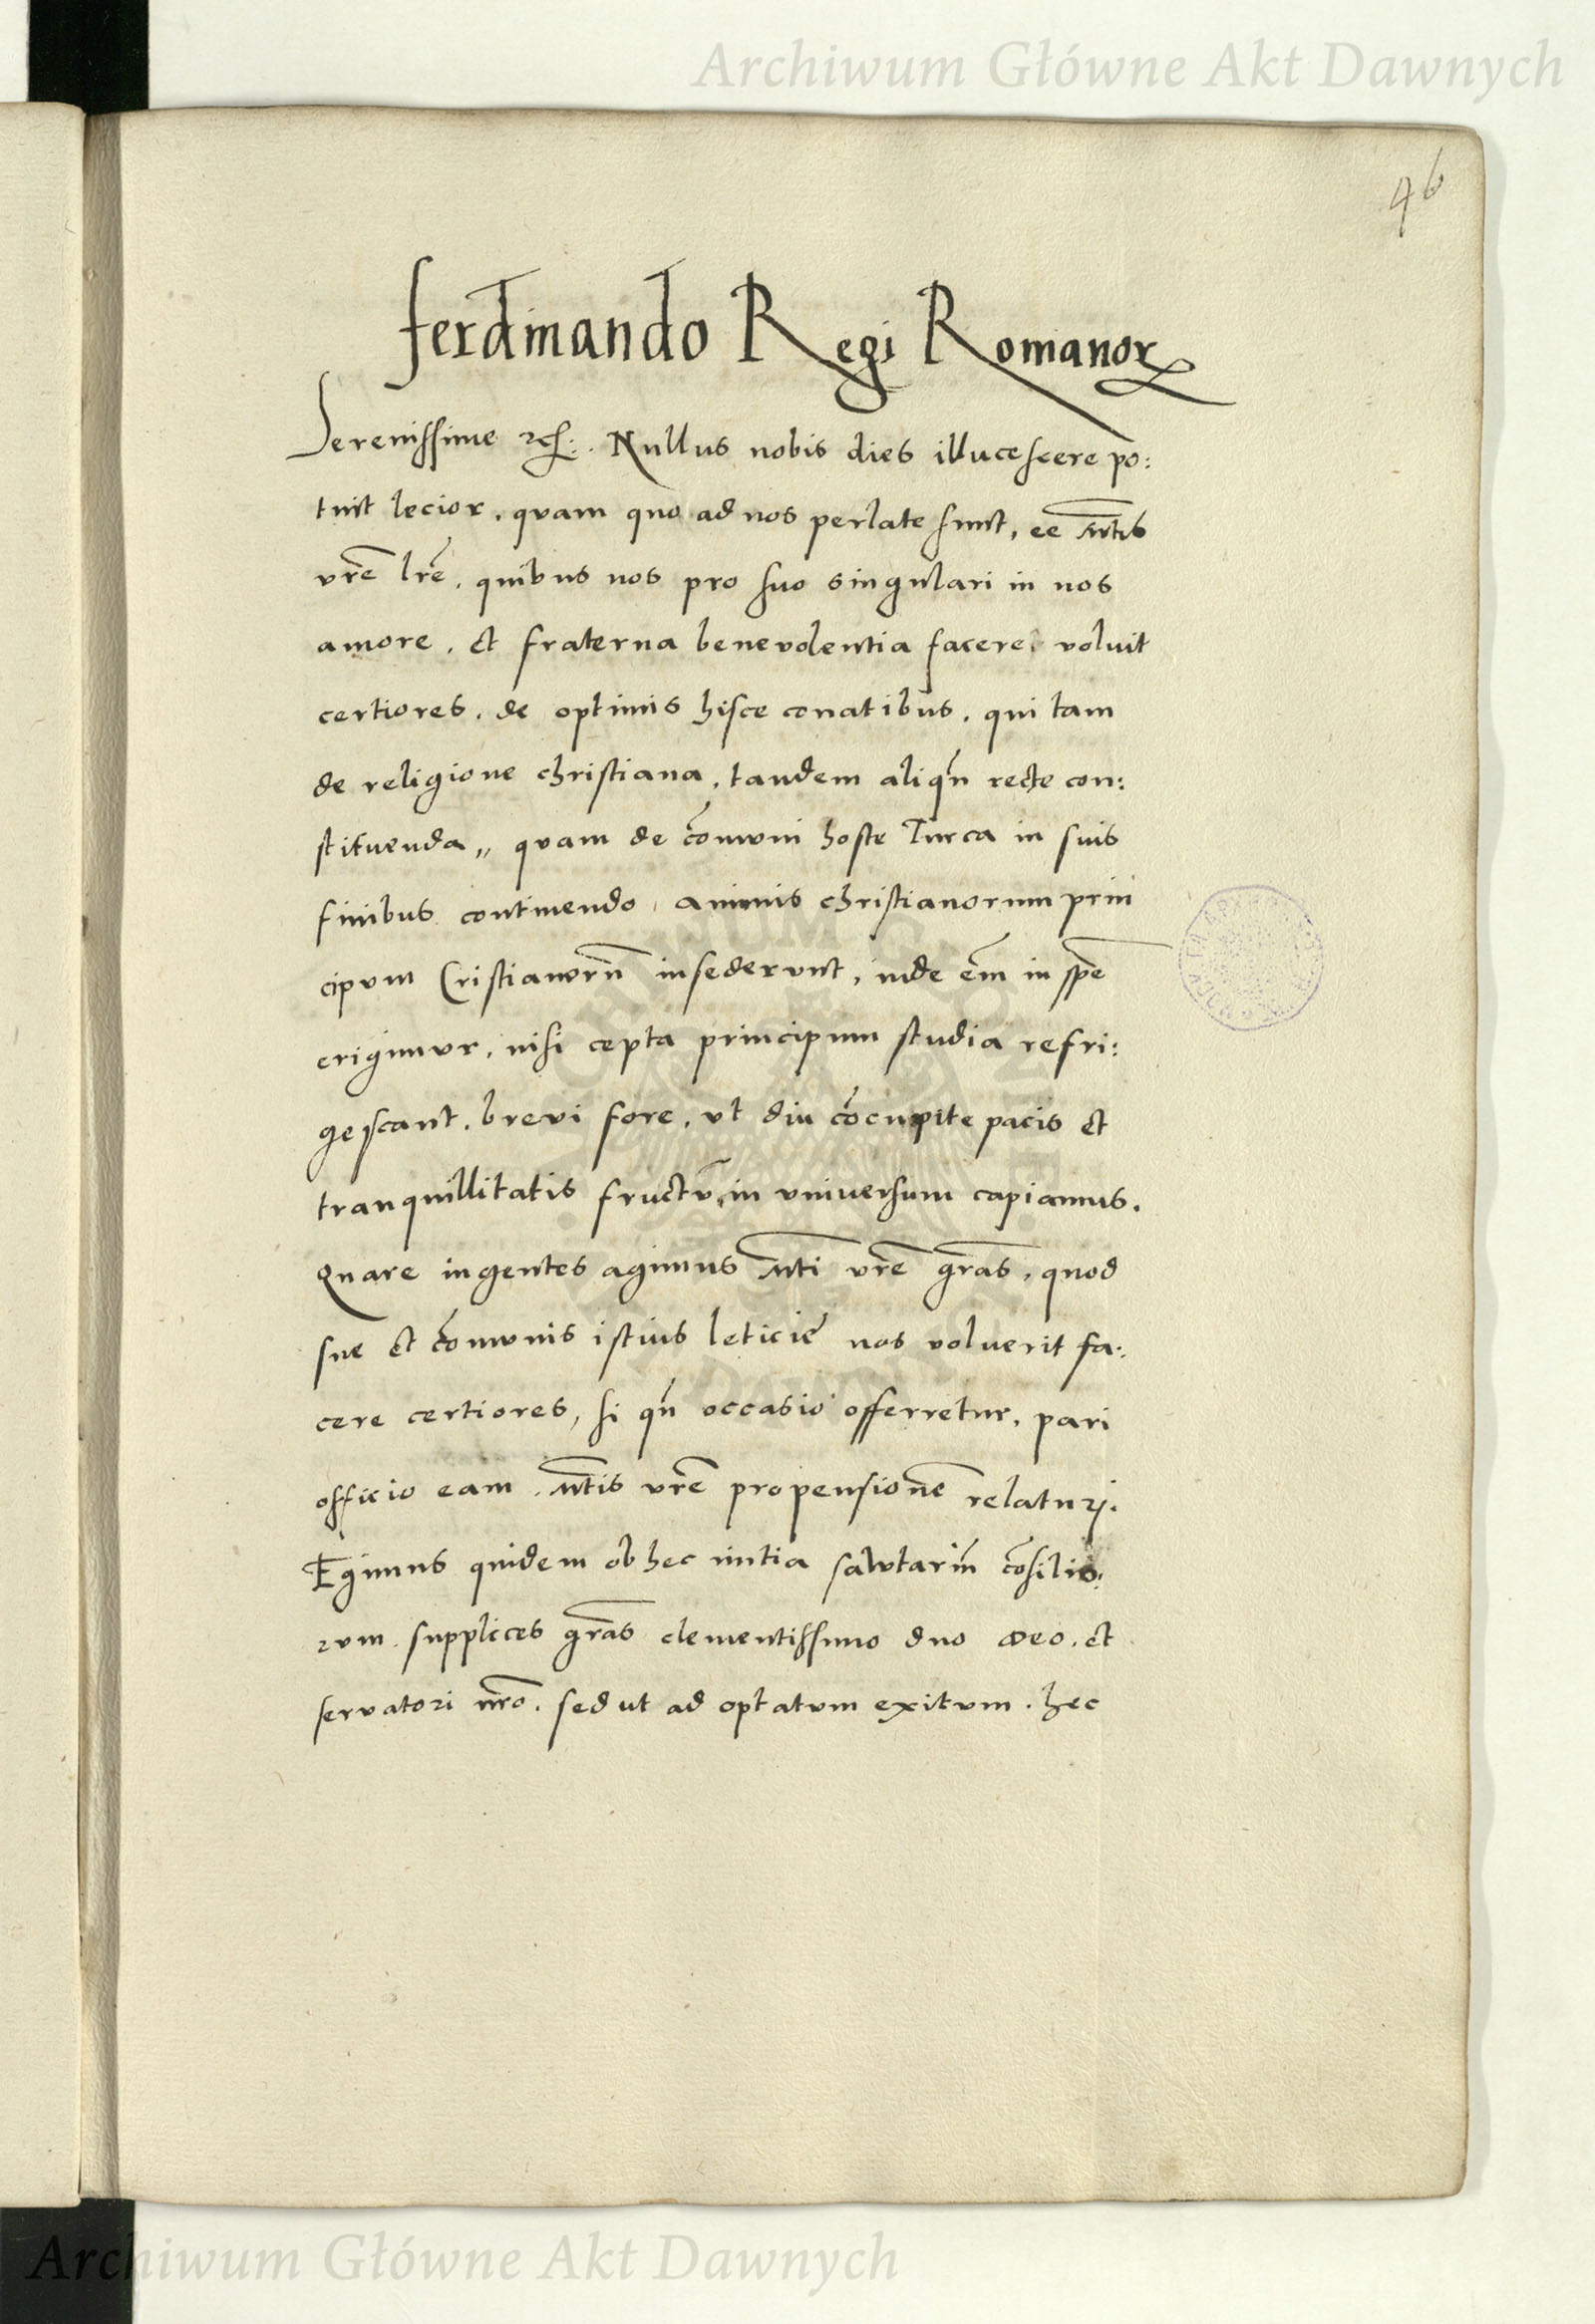 Archiwum Główne Akt Dawnych
46
Ferdinando Regi Romanorꝝ
Serenissime etc. Nullus nobis dies illucescere po:
tuit lecior, quam quo ad nos perlate sunt, ee Mtis
vrẽ lrẽ, quibus nos pro suo singulari in nos
amore, et fraterna benevolentia facere voluit
certiores, de optimis hisce conatibus, qui tam
de religione christiana, tandem aliqñ recte con:
stituenda,, quam de cõmuni hoste Turca in suis
finibus continendo, animis christianorum prin
cipum Cristianorũ insederunt, inde em̃ in spẽ
erigimur, nisi cepta principum studia refri:
gescant, brevi fore, ut diu cõcupite pacis et
tranquillitatis fructũ, in universum capiamus.
Quare ingentes agimus Mti vrẽ gras̃, quod
sue et cõmunis istius leticie nos voluerit fa:
cere certiores, si qñ occasio offerretur, pari
officio eam Mtis vrẽ propensionẽ relaturj.
Egimus quidem ob hec nuntia salutariũ cõsilio:
rum supplices gras̃ clementissimo dno deo, et
servatori nrõ, sed ut ad optatum exitum hec
Archiwum Główne Akt Dawnych